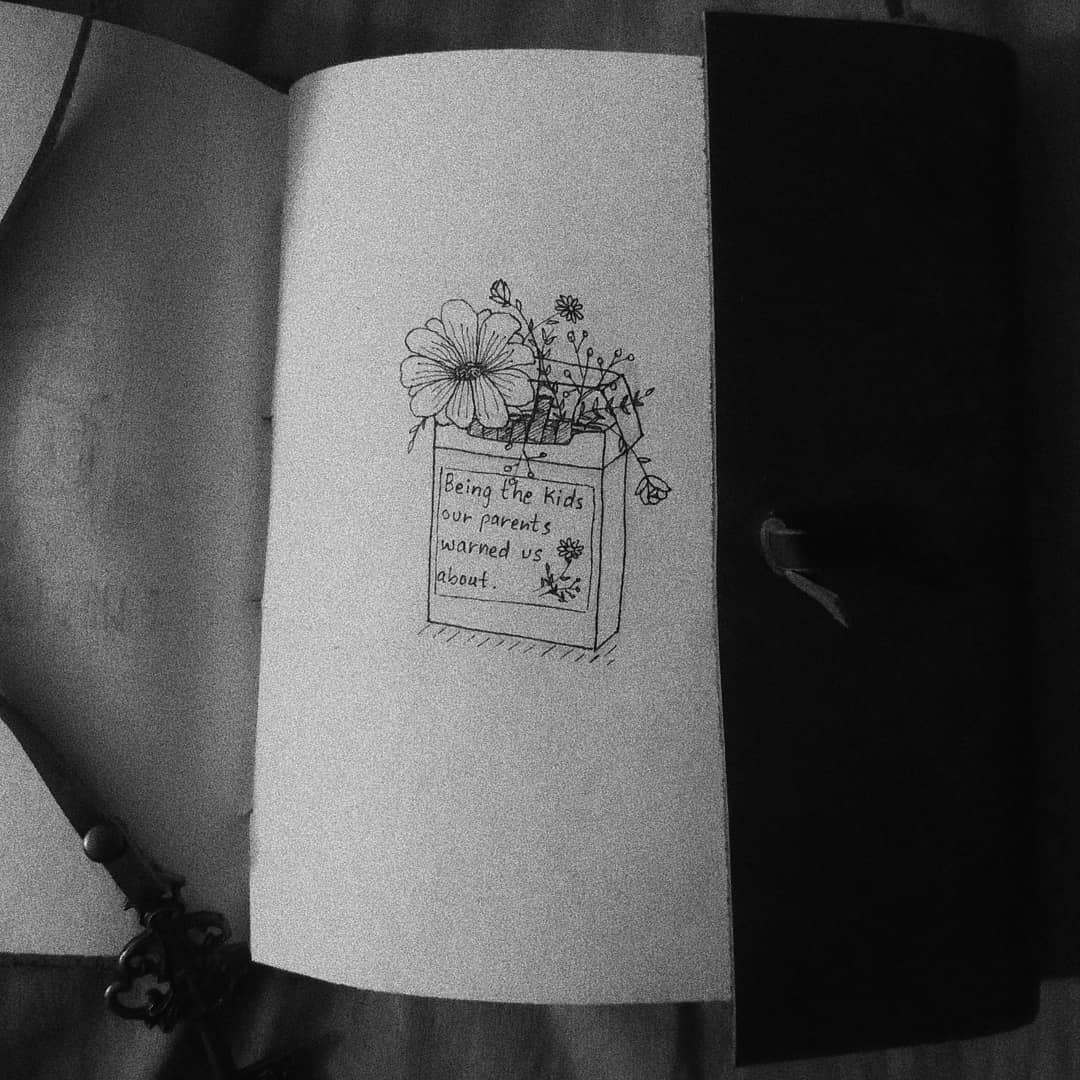 Being the Kids
our parents
warned us
about.